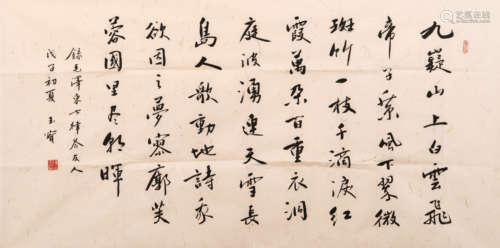 九嶷山上白雲飛
帝子乘風下翠微
斑竹一枝千滴淚紅
霞萬朵百重衣洞
庭波湧連天雪長
島人歌動地詩我
欲因之夢寥廓芙
蓉國里尽朝暉
錄毛澤東七律答友人
戊子初夏 玉寶